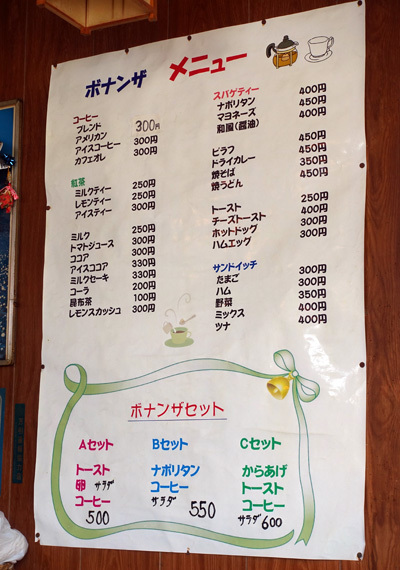 ボナンザ メニュー
コーヒー
ブレンド 300円
アメリカン
アイスコーヒー 300円
カフェオレ 300円
紅茶
ミルクティー 250円
レモンティー 250円
アイスティー 250円
ミルク 250円
トマトジュース 300円
ココア 300円
アイスココア 330円
ミルクセーキ 330円
コーラ 200円
昆布茶 100円
レモンスカッシュ 300円
スパゲティー
ナポリタン 400円
マヨネーズ 450円
和風(醤油) 450円
ピラフ 450円
ドライカレー 450円
焼そば 350円
焼うどん 450円
トースト 250円
チーズトースト 400円
ホットドッグ 300円
ハムエッグ 300円
サンドイッチ
たまご 300円
ハム 300円
野菜 350円
ミックス 400円
ツナ 400円
ボナンザセット
Aセット
トースト
卵 サラダ
コーヒー
500
Bセット
ナポリタン
コーヒー
サラダ 550
Cセット
からあげ
トースト
コーヒー
サラダ 600